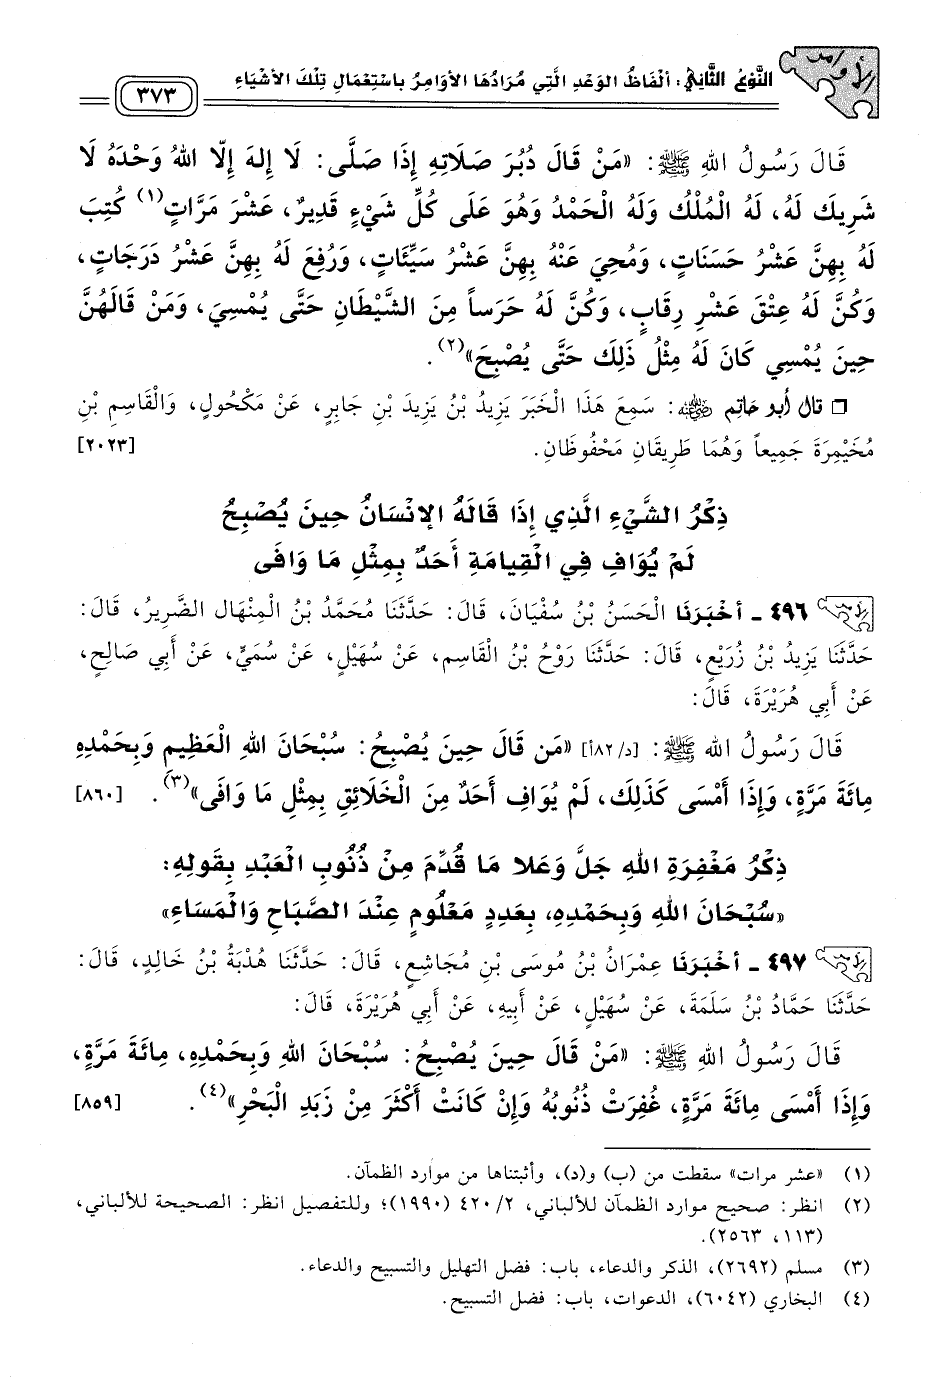 الأوامر
النَّوْعُ الثَّانِي: أَلْفَاظُ الوَعْدِ الَّتِي مُرَادُهَا الأَوَامِرُ بِاسْتِعْمَالِ تِلْكَ الأَشْيَاءِ
٣٧٣
قَالَ رَسُولُ اللهِ ﷺ: «مَنْ قَالَ دُبُرَ صَلَاتِهِ إِذَا صَلَّى: لَا إِلهَ إِلَّا اللهُ وَحْدَهُ لَا
شَرِيكَ لَهُ، لَهُ الْمُلْكُ وَلَهُ الْحَمْدُ وَهُوَ عَلَى كُلِّ شَيْءٍ قَدِيرٌ، عَشْرَ مَرَّاتٍ(١) كُتِبَ
لَهُ بِهِنَّ عَشْرُ حَسَنَاتٍ، وَمُحِيَ عَنْهُ بِهِنَّ عَشْرُ سَيِّئَاتٍ، وَرُفِعَ لَهُ بِهِنَّ عَشْرُ دَرَجَاتٍ،
وَكُنَّ لَهُ عِتْقَ عَشْرِ رِقَابٍ، وَكُنَّ لَهُ حَرَساً مِنَ الشَّيْطَانِ حَتَّى يُمْسِيَ، وَمَنْ قَالَهُنَّ
حِينَ يُمْسِي كَانَ لَهُ مِثْلُ ذَلِكَ حَتَّى يُصْبِحَ»(٢).
❑ قال أبو حاتِم رضي الله عنه: سَمِعَ هَذَا الْخَبَرَ يَزِيدُ بْنُ يَزِيدَ بْنِ جَابِرٍ، عَنْ مَكْحُولٍ، وَالْقَاسِمِ بْنِ
مُخَيْمِرَةَ جَمِيعاً وَهُمَا طَرِيقَانِ مَحْفُوظَانِ. [٢٠٢٣]
ذِكْرُ الشَّيْءِ الَّذِي إِذَا قَالَهُ الإِنْسَانُ حِينَ يُصْبِحُ
لَمْ يُوَافِ فِي الْقِيَامَةِ أَحَدٌ بِمِثْلِ مَا وَافَى
الأوامر ٤٩٦ - أَخْبَرَنَا الْحَسَنُ بْنُ سُفْيَانَ، قَالَ: حَدَّثَنَا مُحَمَّدُ بْنُ الْمِنْهَالِ الضَّرِيرُ، قَالَ:
حَدَّثَنَا يَزِيدُ بْنُ زُرَيْعٍ، قَالَ: حَدَّثَنَا رَوْحُ بْنُ الْقَاسِمِ، عَنْ سُهَيْلٍ، عَنْ سُمَيٍّ، عَنْ أَبِي صَالِحٍ،
عَنْ أَبِي هُرَيْرَةَ، قَالَ:
قَالَ رَسُولُ اللهِ ﷺ: [د/٨٢أ] «مَن قَالَ حِينَ يُصْبِحُ: سُبْحَانَ اللهِ الْعَظِيمِ وَبِحَمْدِهِ
مِائَةَ مَرَّةٍ، وَإِذَا أَمْسَى كَذَلِكَ، لَمْ يُوَافِ أَحَدٌ مِنَ الْخَلَائِقِ بِمِثْلِ مَا وَافَى»(٣). [٨٦٠]
ذِكْرُ مَغْفِرَةِ اللهِ جَلَّ وَعَلا مَا قُدِّمَ مِنْ ذُنُوبِ الْعَبْدِ بِقَوْلِهِ:
«سُبْحَانَ اللهِ وَبِحَمْدِهِ، بِعَدَدٍ مَعْلُومٍ عِنْدَ الصَّبَاحِ وَالْمَسَاءِ»
الأوامر ٤٩٧ - أَخْبَرَنَا عِمْرَانُ بْنُ مُوسَى بْنِ مُجَاشِعٍ، قَالَ: حَدَّثَنَا هُدْبَةُ بْنُ خَالِدٍ، قَالَ:
حَدَّثَنَا حَمَّادُ بْنُ سَلَمَةَ، عَنْ سُهَيْلٍ، عَنْ أَبِيهِ، عَنْ أَبِي هُرَيْرَةَ، قَالَ:
قَالَ رَسُولُ اللهِ ﷺ: «مَنْ قَالَ حِينَ يُصْبِحُ: سُبْحَانَ اللهِ وَبِحَمْدِهِ، مِائَةَ مَرَّةٍ،
وَإِذَا أَمْسَى مِائَةَ مَرَّةٍ، غُفِرَتْ ذُنُوبُهُ وَإِنْ كَانَتْ أَكْثَرَ مِنْ زَبَدِ الْبَحْرِ»(٤). [٨٥٩]
(١) «عشر مرات» سقطت من (ب) و(د)، وأثبتناها من موارد الظمآن.
(٢) انظر: صحيح موارد الظمآن للألباني، ٤٢٠/٢ (١٩٩٠)؛ وللتفصيل انظر: الصحيحة للألباني،
(١١٣، ٢٥٦٣).
(٣) مسلم (٢٦٩٢)، الذكر والدعاء، باب: فضل التهليل والتسبيح والدعاء.
(٤) البخاري (٦٠٤٢)، الدعوات، باب: فضل التسبيح.